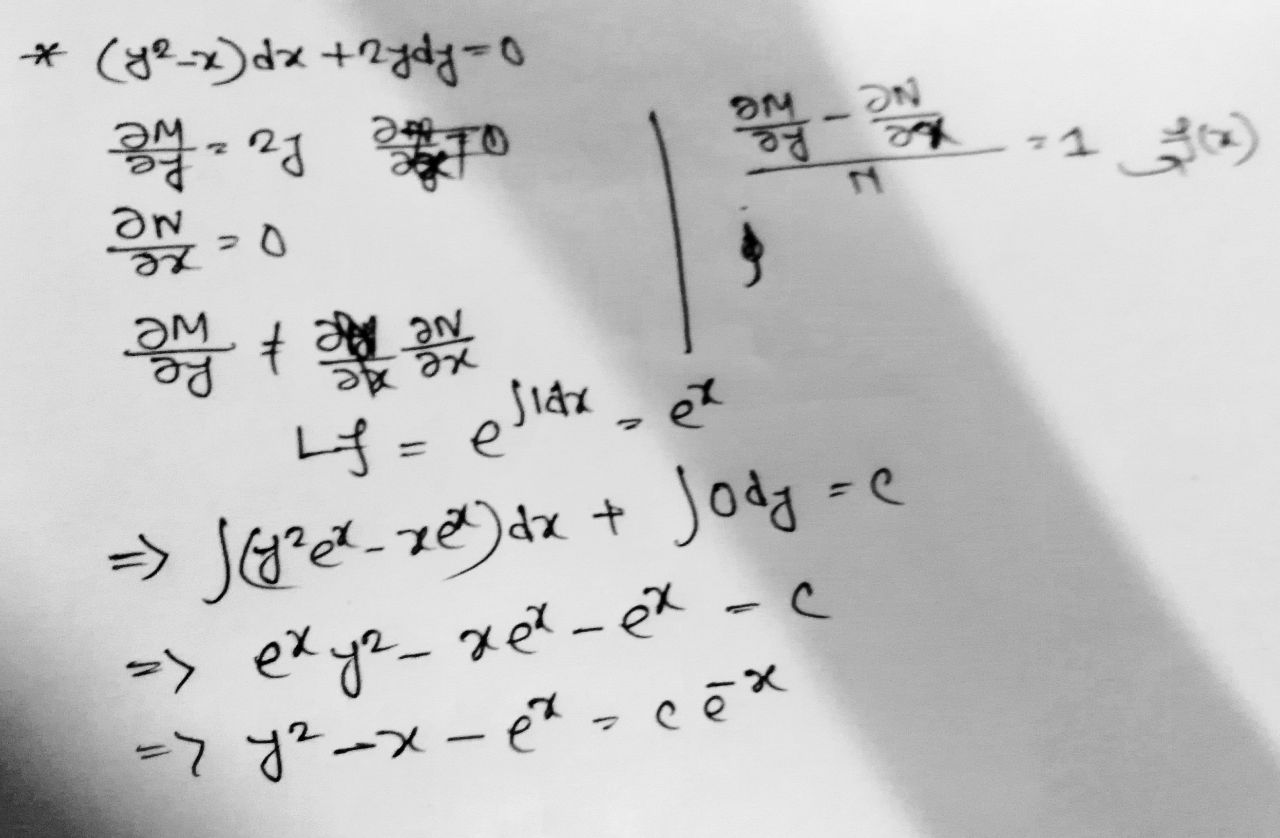 * (y²-x)dx + 2ydy = 0
∂M/∂y = 2y
∂N/∂x = 0
∂M/∂y ≠ ∂N/∂x
(∂M/∂y - ∂N/∂x)/N = 1 f(x)
I.f = e^∫1dx = e^x
=> ∫(y²e^x - xe^x)dx + ∫0dy = c
=> e^x y² - xe^x - e^x = c
=> y² - x - e^x = c e^-x